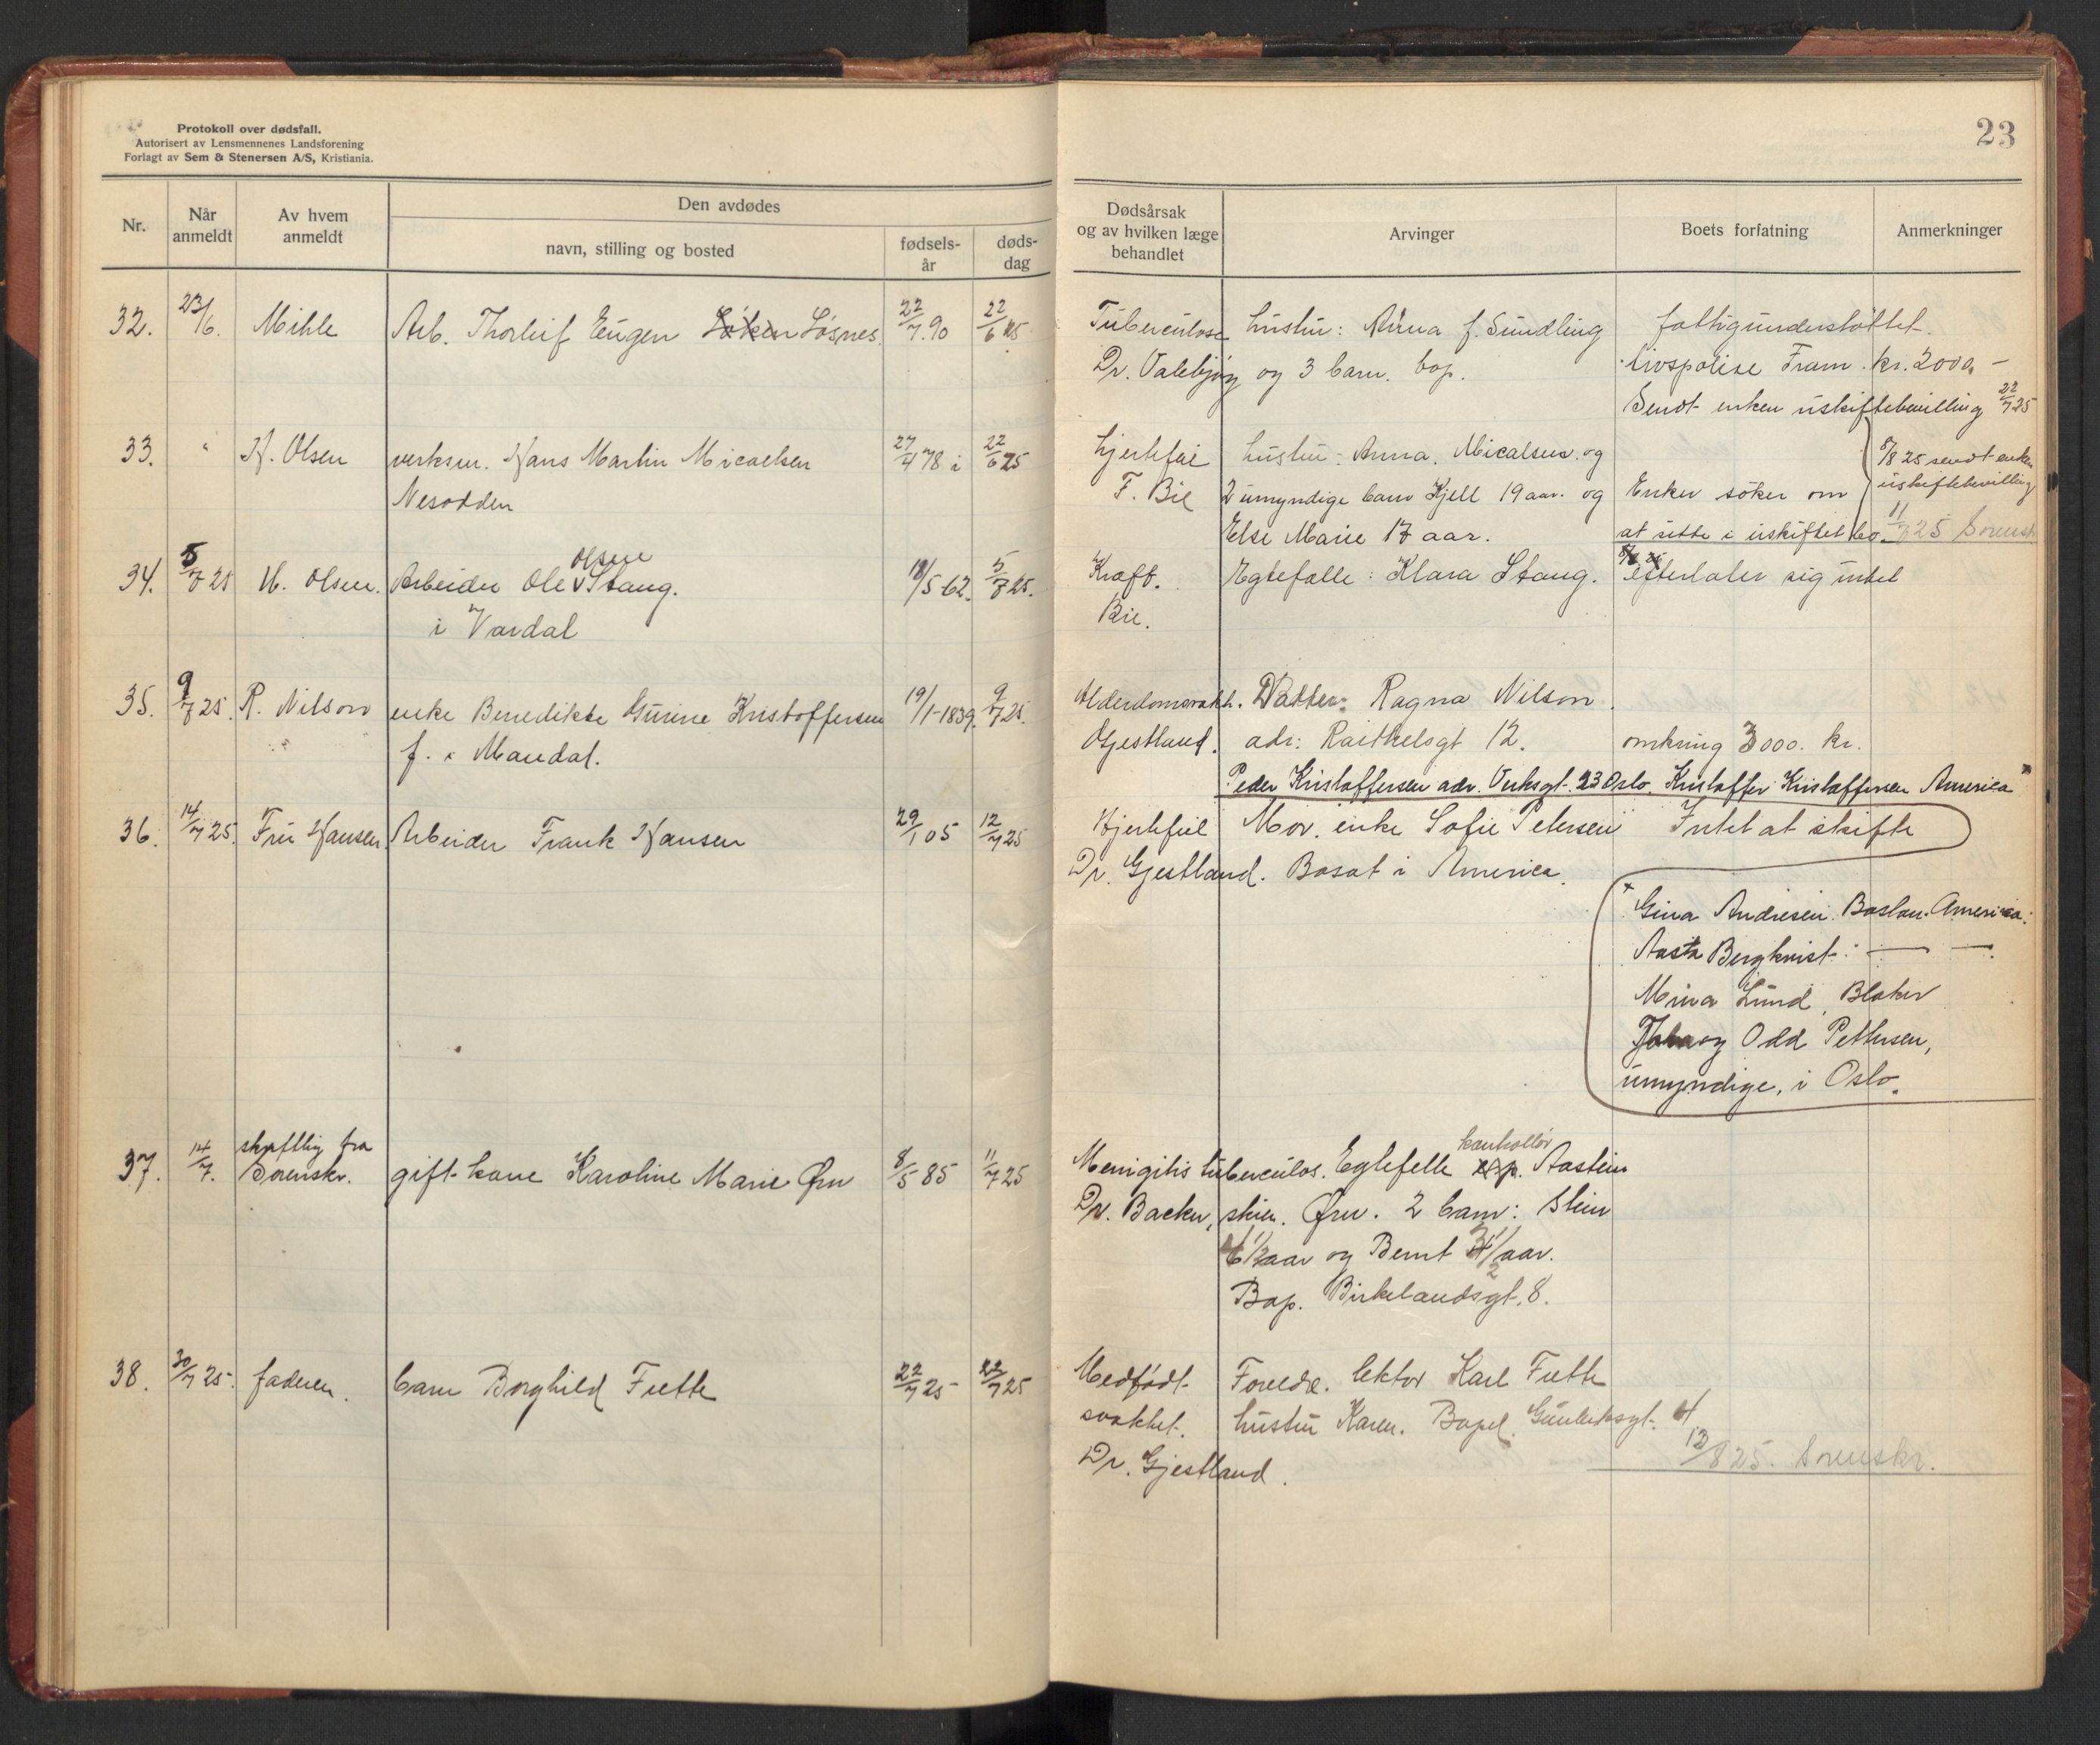 Protokoll over dødsfall.
Autorisert av Lensmennenes Landsforening
Forlagt av Sem & Stenersen A/S, Kristiania.
23
Nr.
Når anmeldt
Av hvem anmeldt
Den avdødes
navn, stilling og bosted
fødsels-år
døds-dag
Dødsårsak og av hvilken læge behandlet
Arvinger
Boets forfatning
Anmerkninger
32. 23/6. Mihle Arb. Thorleif Eugen Løken Løsnes. 22/7.90 22/6 25 Tuberculose hustru: Anna f. Sundling fattigunderstøttet.
Dr. Valebjørg og 3 barn. bop. Livspolise Fram. kr. 2000, –
Sendt enken uskiftebevilling 22/7 25
33. " H. Olsen verksm. Hans Martin Micaelsen 27/4 78 i 22/6 25 hjertefeil hustru: Anna. Micalsen. og 8/8 25 sendt enken
Nesodden F. Bie 2 umyndige barn Kjell 19 aar. og Enken søker om uskiftebevilling
Else Marie 17 aar. at sitte i uskiftet bo. 11/7 25 Sorensk
34. 5/7 25 H. Olsen. Arbeider Ole Olsen Stang. 18/5-62. 5/7 25. Kræft. Egtefælle: Klara Stang. efterlater sig intet
i Vardal Bie.
35. 9/7 25. R. Nilson enke Benedikte Gurine Kristoffersen 19/1-1839. 9/7 25. Alderdomsvakh. Datter: Ragna Nilson.
f. i Mandal. Gjestland. adr: Raithelsgt 12. omkring 3000. kr.
Peder Kristoffersen adr. Verksgt. 23 Oslo. Kristoffer Kristoffersen America x
36. 14/7 25. Fru Hansen Arbeider Frank Hansen 29/1 05 12/7 25 Hjertefeil Mor. enke Sofie Petersen Intet at skifte
Dr. Gjestland. Bosat i America.
x Gina Andresen. Boston. America.
Aasta Bergkvist. – –
Mina Lund, Blaker
og Odd Pettersen,
umyndige, i Oslo.
37. 14/7. skriftlig fra
Sorenskr. gift kone Karoline Marie Ørn 8/5 85 11/7 25 Menigitis tuberculos. Egtefelle exp. kontollør Aastein
Dr. Backer, skier. Ørn. 2 barn: Stein
6 1/2 aar og Bernt 3 1/2 aar.
Bop. Birkelandsgt. 8.
38. 30/7 25. faderen. barn Borghild Frette 22/7 25 22/7 25 Medfødt Foreldre. lektor Karl Frette
svakhet. hustru Karen. Bopel. Gunleiksgt. 4
Dr. Gjestland. 12/8 25. Sorenskr.